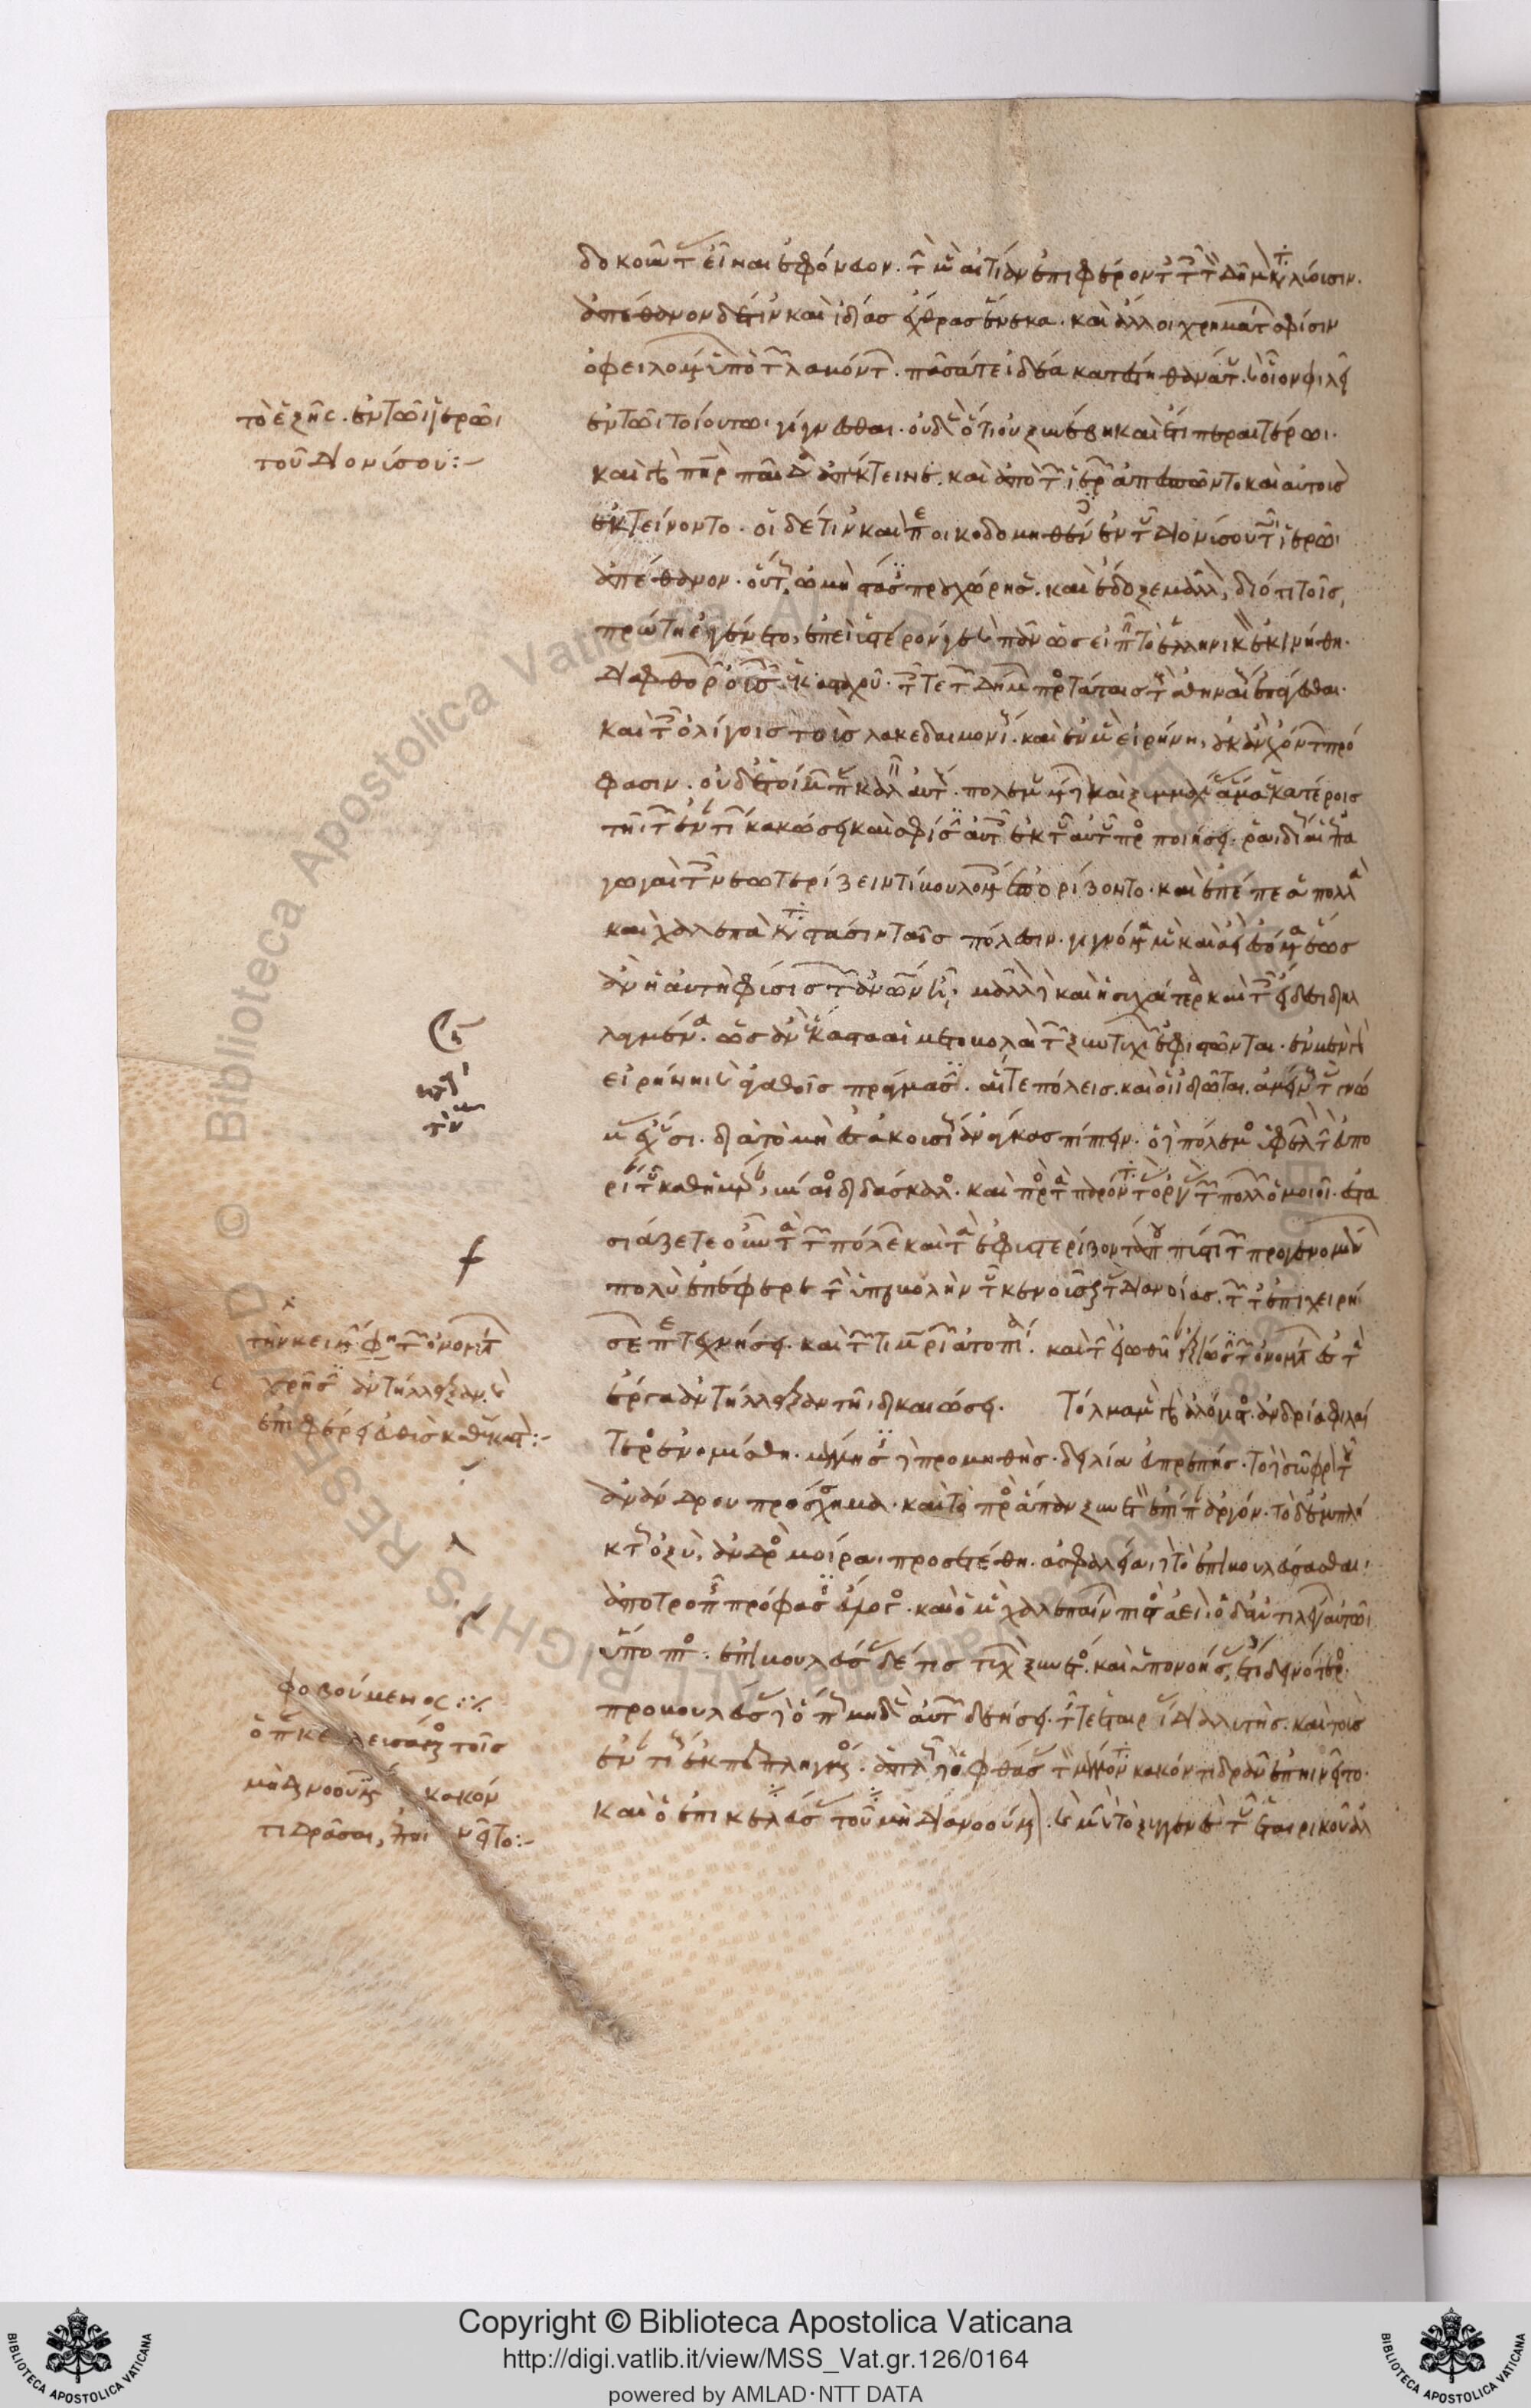 δοκοῦντας εἶναι ἐφόνευον. τὴν μὲν αἰτίαν ἐπιφέροντες τοῖς τὸν δῆμον καταλύουσιν.
ἀπέθανον δέ τινες καὶ ἰδίας ἔχθρας ἕνεκα. καὶ ἄλλοι χρημάτων σφίσιν
ὀφειλομένων ὑπὸ τῶν λαβόντων. πᾶσά τε ἰδέα κατέστη θανάτου. καὶ οἷον φιλεῖ
ἐν τῶι τοιούτωι γίγνεσθαι. οὐδὲν ὅτι οὐ ξυνέβη καὶ ἔτι περαιτέρωι.
καὶ γὰρ πατὴρ παῖδα ἀπέκτεινε. καὶ ἀπὸ τῶν ἱερῶν ἀπεσπῶντο καὶ αὐτοῖς
ἐκτείνοντο. οἱ δέ τινες καὶ περιοικοδομηθέντες ἐν τοῦ Διονύσου τῶι ἱερῶι
ἀπέθανον. οὕτως ὠμὴ στάσις προυχώρησε. καὶ ἔδοξε μᾶλλον, διότι τοῖς,
πρώτη ἐγένετο, ἐπεὶ ὕστερόν γε καὶ πᾶν ὡς εἰπεῖν τὸ ἑλληνικὸν ἐκινήθη.
διαφορῶν οὐσῶν ἑκασταχοῦ. τοῖς τε τῶν δήμων προστάταις τοὺς ἀθηναίους ἐπάγεσθαι.
καὶ τοῖς ὀλίγοις τοὺς λακεδαιμονίους. καὶ ἐν μὲν εἰρήνη, οὐκ ἂν ἐχόντων πρό
φασιν. οὐδ' ἑτοίμων παρακαλεῖν αὐτούς. πολεμουμένων δὲ καὶ ξυμμαχίας ἅμα ἑκατέροις
τῆι τῶν ἐναντίων κακώσει καὶ σφίσιν αὐτοῖς ἐκ τοῦ αὐτοῦ προσποιήσει. ῥαιδίως αἱ ἐπα
γωγαὶ τοῖς νεωτερίζειν τι βουλομένοις ἐπορίζοντο. καὶ ἐπέπεσε πολλὰ
καὶ χαλεπὰ κατὰ στάσιν ταῖς πόλεσιν. γιγνόμενα μὲν καὶ ἀεὶ ἐσόμενα ἕως
ἂν ἡ αὐτὴ φύσις τῶν ἀνθρώπων ἦι, μᾶλλον δὲ καὶ ἡσυχαίτερα καὶ τοῖς εἴδεσι διηλ
λαγμένα. ὡς ἂν ἕκασται αἱ μεταβολαὶ τῶν ξυντυχιῶν ἐφιστῶνται. ἐν μὲν γὰρ
εἰρήνηι καὶ ἀγαθοῖς πράγμασιν. αἵ τε πόλεις. καὶ οἱ ἰδιῶται. ἀμείνους τὰς γνώ
μας ἔχουσι. διὰ τὸ μὴ ἐς ἀκουσίους ἀνάγκας πίπτειν. ὁ δὲ πόλεμος ὑφελὼν τὴν εὐπο
ρίαν τοῦ καθ' ἡμέραν, βίαιος διδάσκαλος. καὶ πρὸς τὰ παρόντα τὰς ὀργὰς τῶν πολλῶν ὁμοιοῖ. ἐστα
σίαζέ τε οὖν τὰ τῶν πόλεων καὶ τὰ ἐφυστερίζοντά που πύστει τῶν προγενομένων
πολὺ ἐπέφερε τὴν ὑπερβολὴν τοῦ καινοῦσθαι τὰς διανοίας. τῶν τ' ἐπιχειρή
σεων περιτεχνήσει. καὶ τῶν τιμωριῶν ἀτοπίαι. καὶ τὴν εἰωθυῖαν ἀξίωσιν τῶν ὀνομάτων ἐς τὰ
ἔργα ἀντήλλαξαν τῆι δικαιώσει. Τόλμα μὲν γὰρ ἀλόγιστος. ἀνδρία φιλέ
ταιρος ἐνομίσθη. μέλλησις δὲ προμηθὴς. δειλία εὐπρεπής. τὸ δὲ σῶφρον τοῦ
ἀνάνδρου πρόσχημα. καὶ τὸ πρὸς ἅπαν ξυνετὸν ἐπὶ πᾶν ἀργόν. τὸ δ' ἐμπλή
κτως ὀξὺ, ἀνδρὸς μοίραι προσετέθη. ἀσφαλείαι δὲ τὸ ἐπιβουλεύσασθαι.
ἀποτροπῆς πρόφασις εὔλογος. καὶ ὁ μὲν χαλεπαίνων πιστὸς ἀεὶ. ὁ δ' ἀντιλέγων αὐτῶι
ὕποπτος. ἐπιβουλεύσας δέ τις τυχὼν ξυνετός. καὶ ὑπονοήσας, ἔτι δεινότερος.
προβουλεύσας δὲ ὅπως μηδὲν αὐτῶν δεήσει. τῆς τε ἑταιρίας διαλυτὴς. καὶ τοὺς
ἐναντίους ἐκπεπληγμένος. ἁπλῶς δὲ ὁ φθάσας τὸν μέλλοντα κακόν τι δρᾶν ἐπηινεῖτο.
καὶ ὁ ἐπικελεύσας τοῦ μὴ διανοούμενον. καὶ μὴν καὶ τὸ ξυγγενὲς τοῦ ἑταιρικοῦ ἀλ
τὸ ἑξῆς. ἐν τῶι ἱερῶι
τοῦ Διονύσου:-
τῶν ὀνομάτων
ἀντήλλαξαν
φοβούμενος
τοῖς
μὴ διανοουμένοις κακόν
τι δρᾶσαι,
Copyright © Biblioteca Apostolica Vaticana
http://digi.vatlib.it/view/MSS_Vat.gr.126/0164
powered by AMLAD·NTT DATA